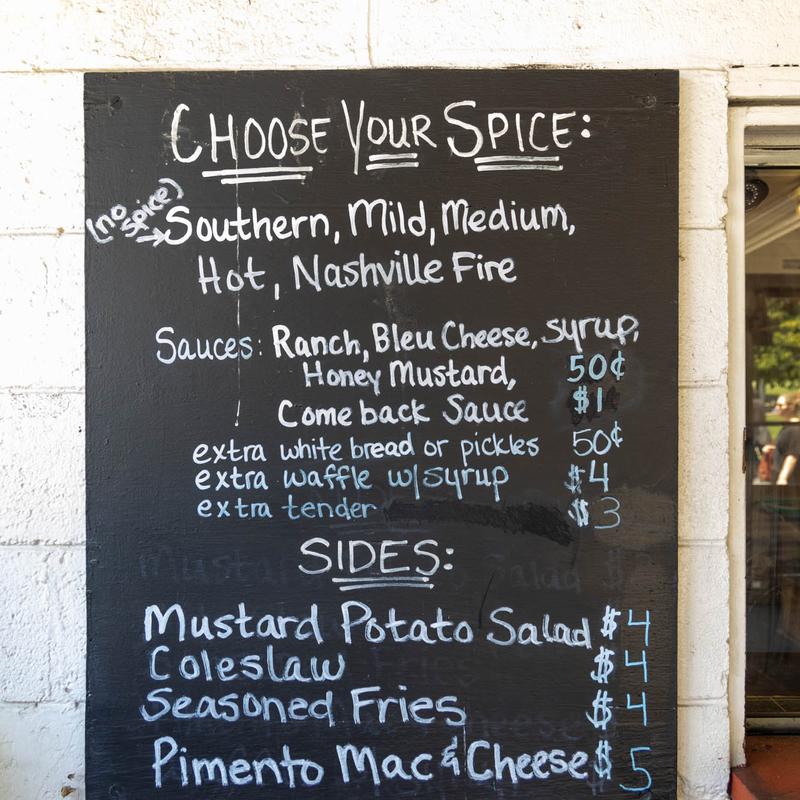 CHOOSE YOUR SPICE:
(no spice)
Southern, Mild, Medium,
Hot, Nashville Fire
Sauces: Ranch, Bleu Cheese, syrup,
Honey Mustard, 50¢
Comeback Sauce $1
extra white bread or pickles 50¢
extra waffle w/syrup $4
extra tender $3
SIDES:
Mustard Potato Salad $4
Coleslaw $4
Seasoned Fries $4
Pimento Mac & Cheese $5